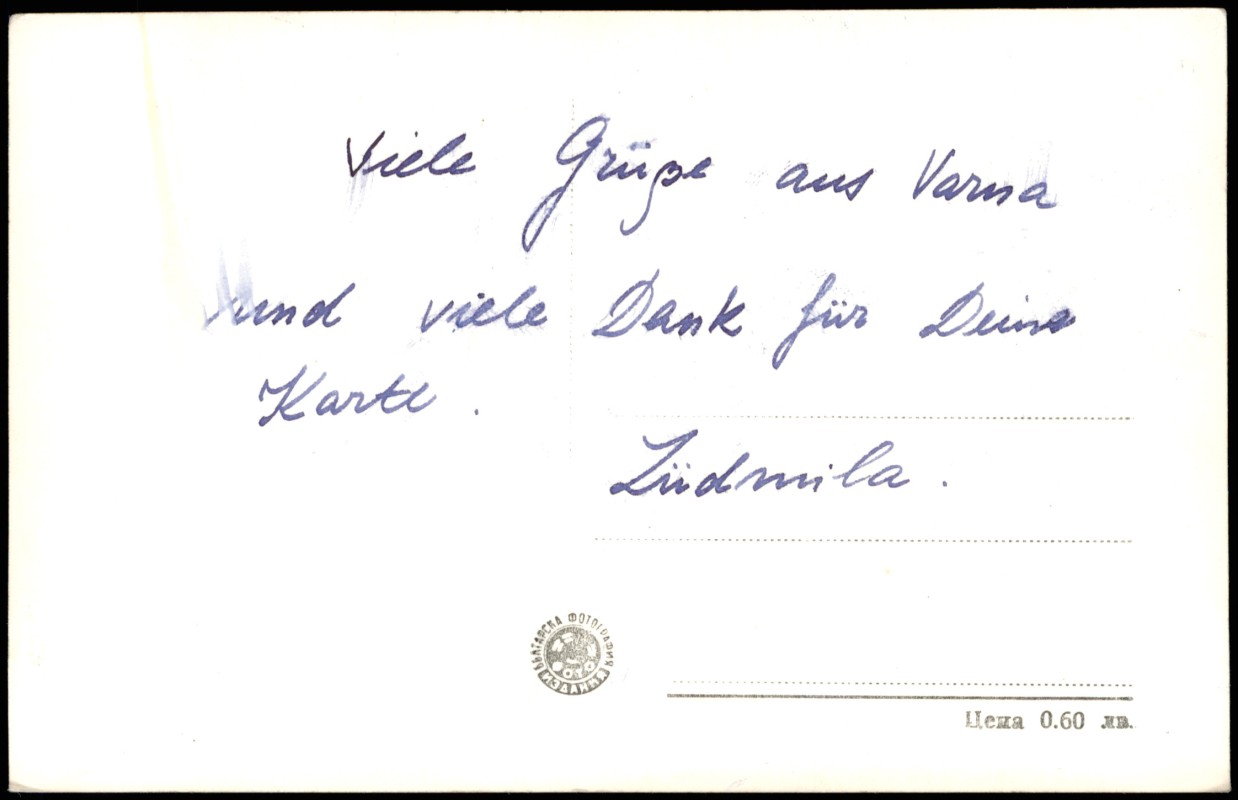 Viele Grüße aus Varna
und viele Dank für Deine
Karte.
Lüdmila.
БЪЛГАРСКА ФОТОГРАФИЯ
ФОТО
ИЗДАНИЯ
Цена 0.60 лв.